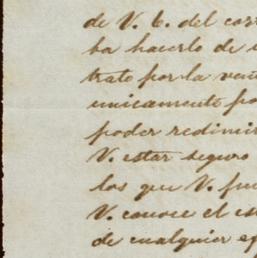 de V. E. del cor
ba hacerlo de
trato por la ven
unicamente po
poder redimir
V. estar seguro
los que V. fu
V. conoce el es
de cualquier